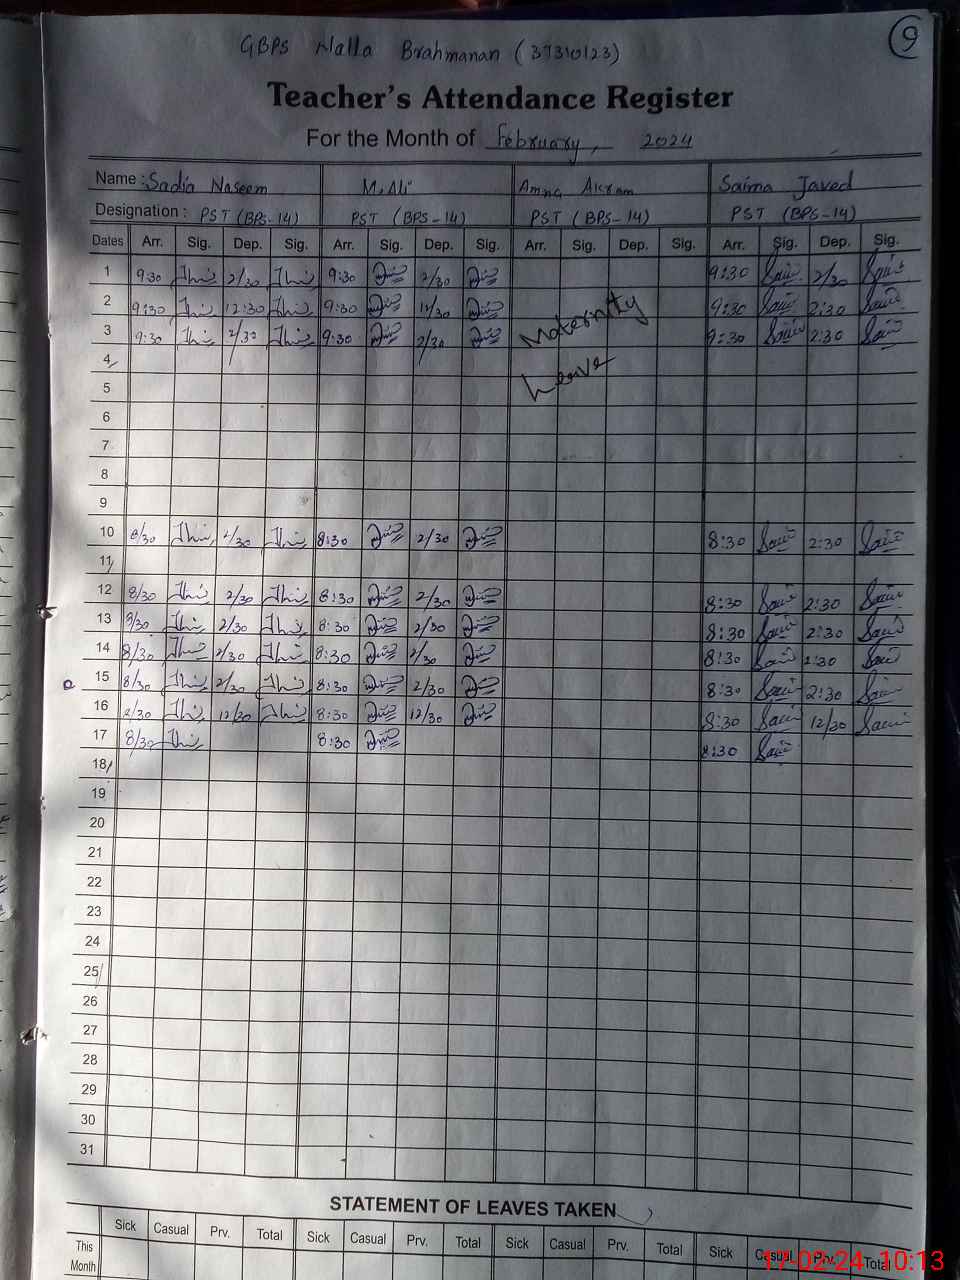 9
GBPS Nalla Brahmanan (37310123)
Teacher's Attendance Register
For the Month of February, 2024
Name : Sadia Naseem M. Ali Amna Akram Saima Javed
Designation : PST (BPS-14) PST (BPS-14) PST (BPS-14) PST (BPS-14)
Dates Arr. Sig. Dep. Sig. Arr. Sig. Dep. Sig. Arr. Sig. Dep. Sig. Arr. Sig. Dep. Sig.
1 9:30 2/30 9:30 2/30 9:30 2/30
2 9:30 12:30 9:30 12/30 9:30 2:30
3 9:30 2/30 9:30 2/30 9:30 2:30
Maternity
Leave
4
5
6
7
8
9
10 8/30 2/30 8:30 2/30 8:30 2:30
11
12 8/30 2/30 8:30 2/30 8:30 2:30
13 8/30 2/30 8:30 2/30 8:30 2:30
14 8/30 2/30 8:30 2/30 8:30 2:30
15 8/30 2/30 8:30 2/30 8:30 2:30
16 12/30 8:30 12/30 8:30 12/30
17 8/30 8:30 8:30
18
19
20
21
22
23
24
25
26
27
28
29
30
31
STATEMENT OF LEAVES TAKEN
Sick Casual Prv. Total Sick Casual Prv. Total Sick Casual Prv. Total Sick Casual Prv. Total
This
Month
17-02-24 10:13